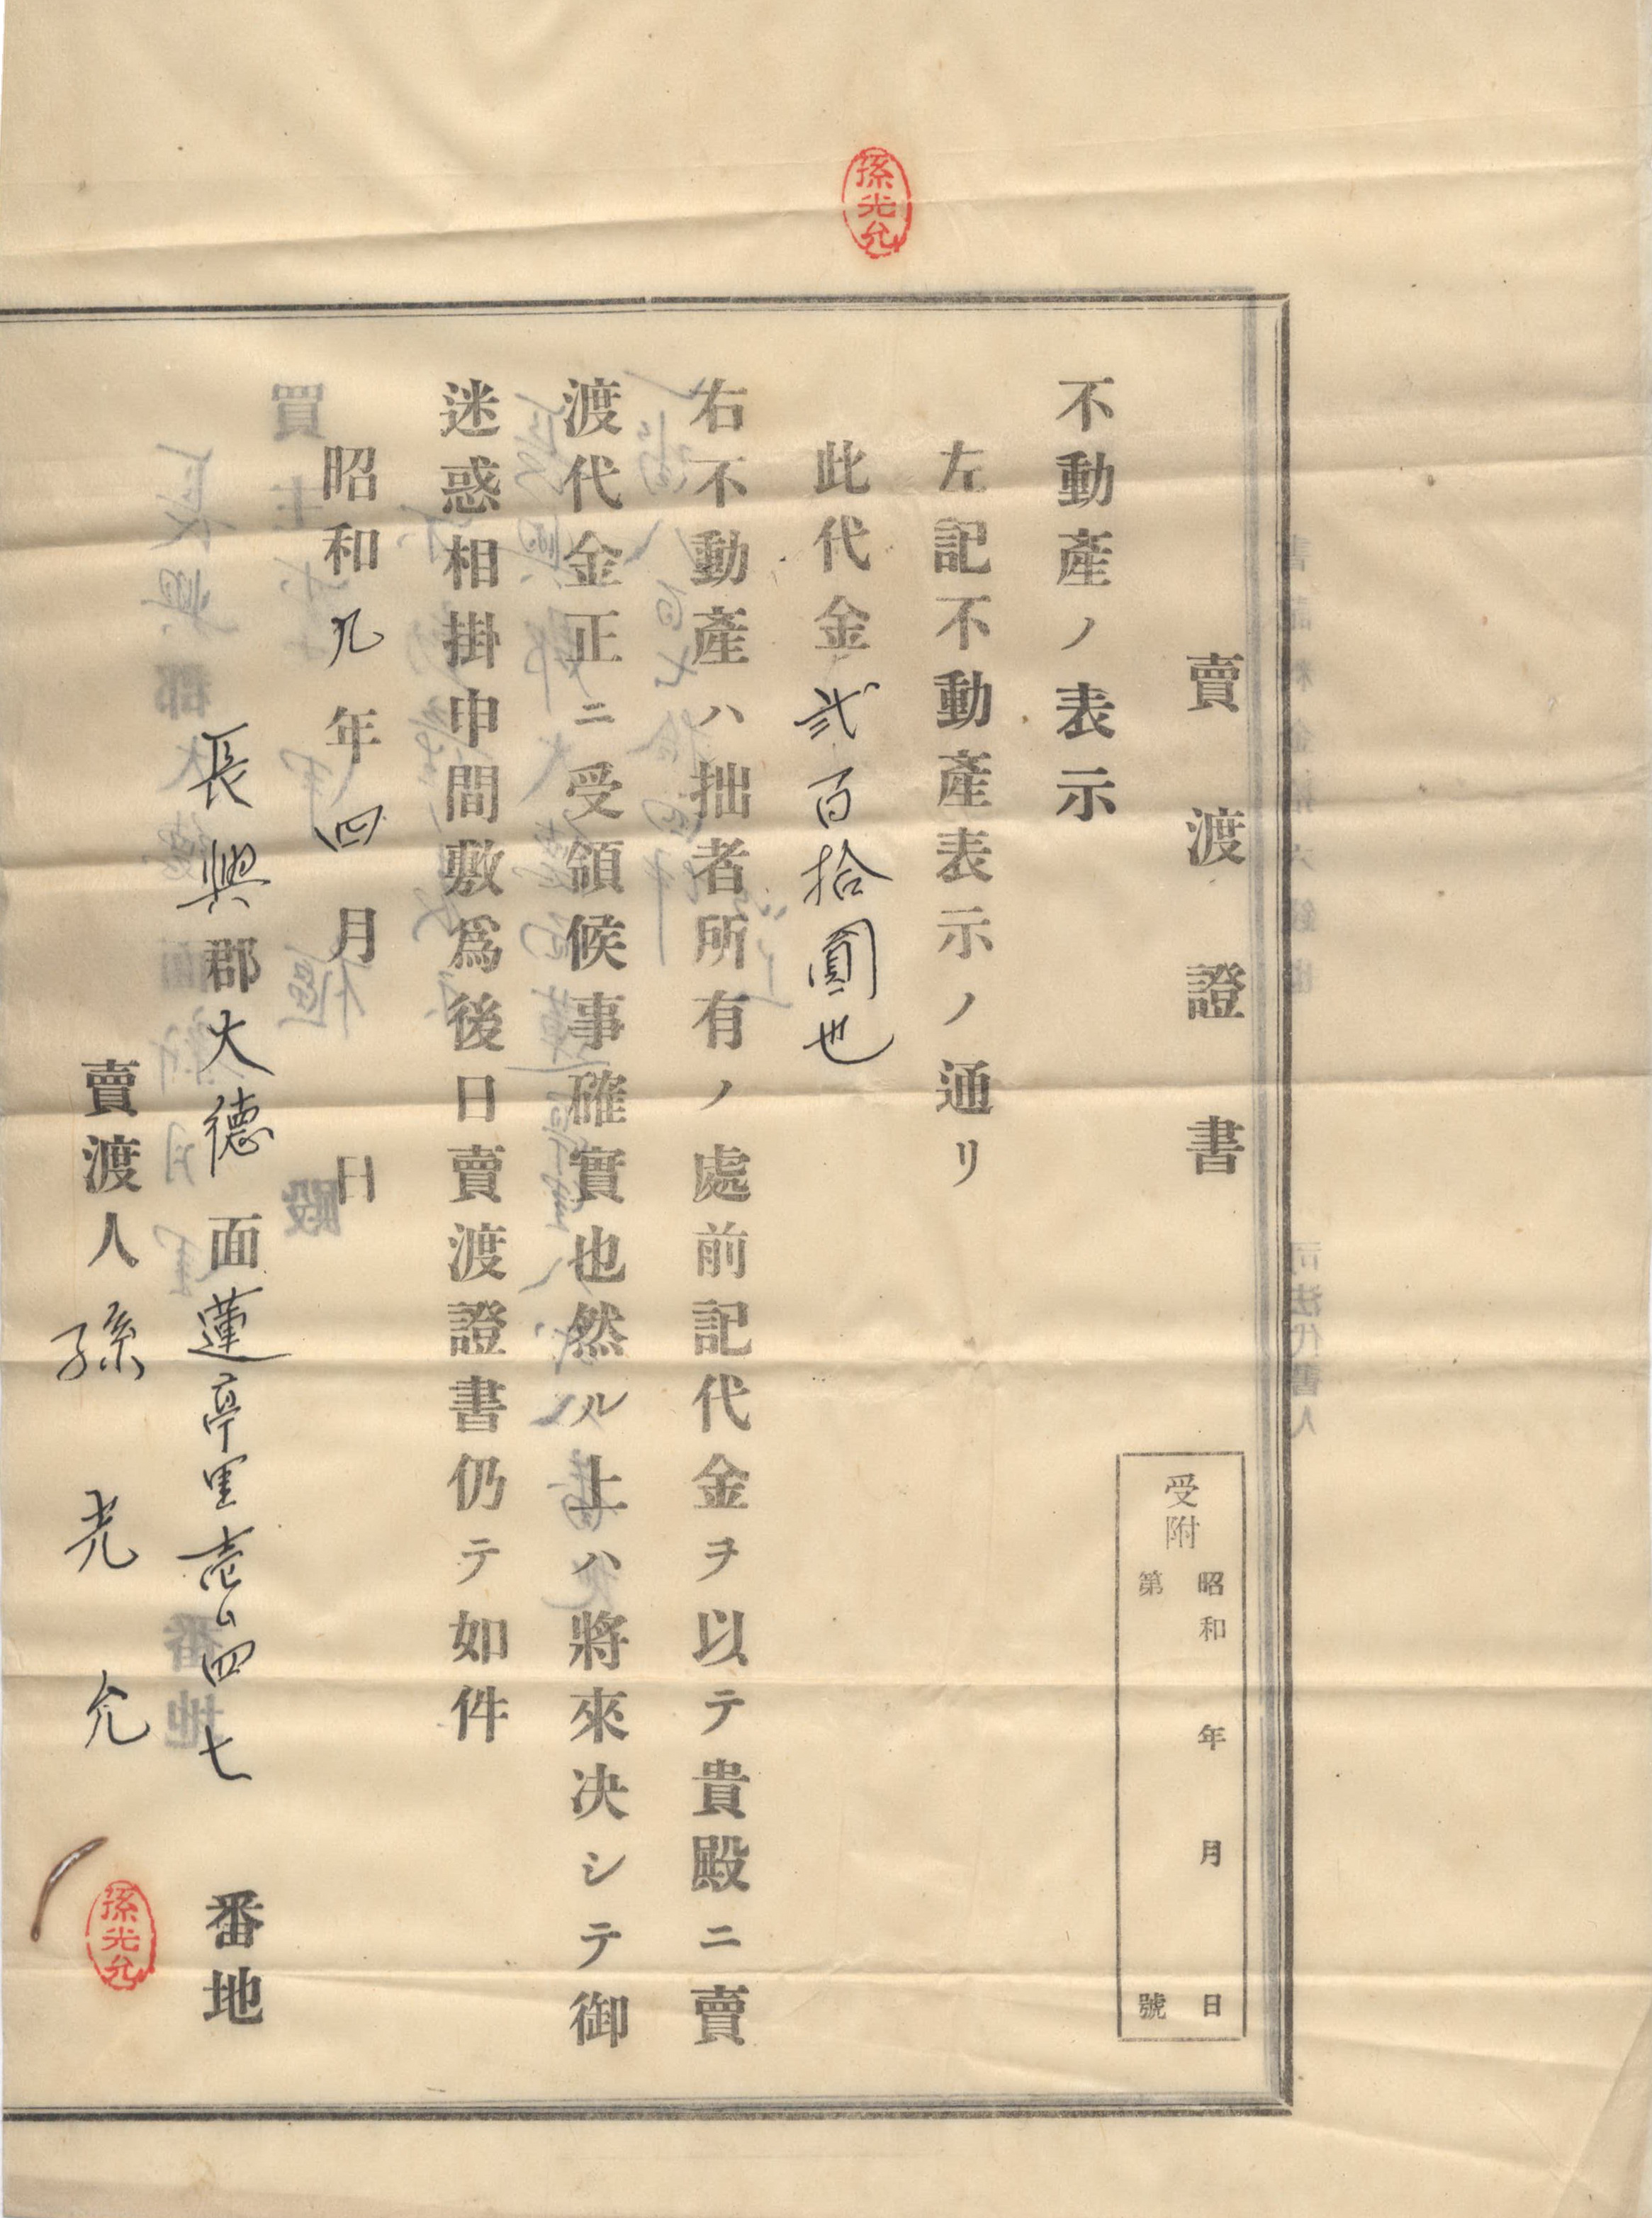 孫光允
賣渡證書
受附
昭和 年 月 日
第 號
不動產ノ表示
左記不動產表示ノ通リ
此代金貳百拾圓也
右不動產ハ拙者所有ノ處前記代金ヲ以テ貴殿ニ賣
渡代金正ニ受領候事確實也然ル上ハ將來決シテ御
迷惑相掛申間敷爲後日賣渡證書仍テ如件
昭和九年四月 日
長興郡大德面蓮亭里壱四七番地
賣渡人孫光允
孫光允